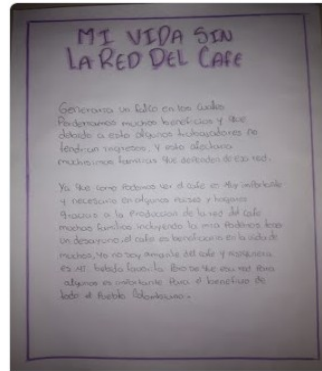 MI VIDA SIN
LA RED DEL CAFE
Generaria un fallo en los cuales
Perderiamos muchos beneficios y que
debido a esto algunos trabajadores no
tendrian ingresos, y esto afectaria
muchisimas familias que dependen de esa red.
Ya que como Podemos ver el cafe es muy importante
y necesario en algunos paises y hogares
gracias a la Produccion de la red del cafe
muchas familias incluyendo la mia Podemos tener
un desayuno. el cafe es beneficioso en la vida de
muchos, Yo no soy amante del cafe y
es mi bebida favorita. Pero se que esa red Para
algunos es importante Para el beneficio de
todo el Pueblo Colombiano.